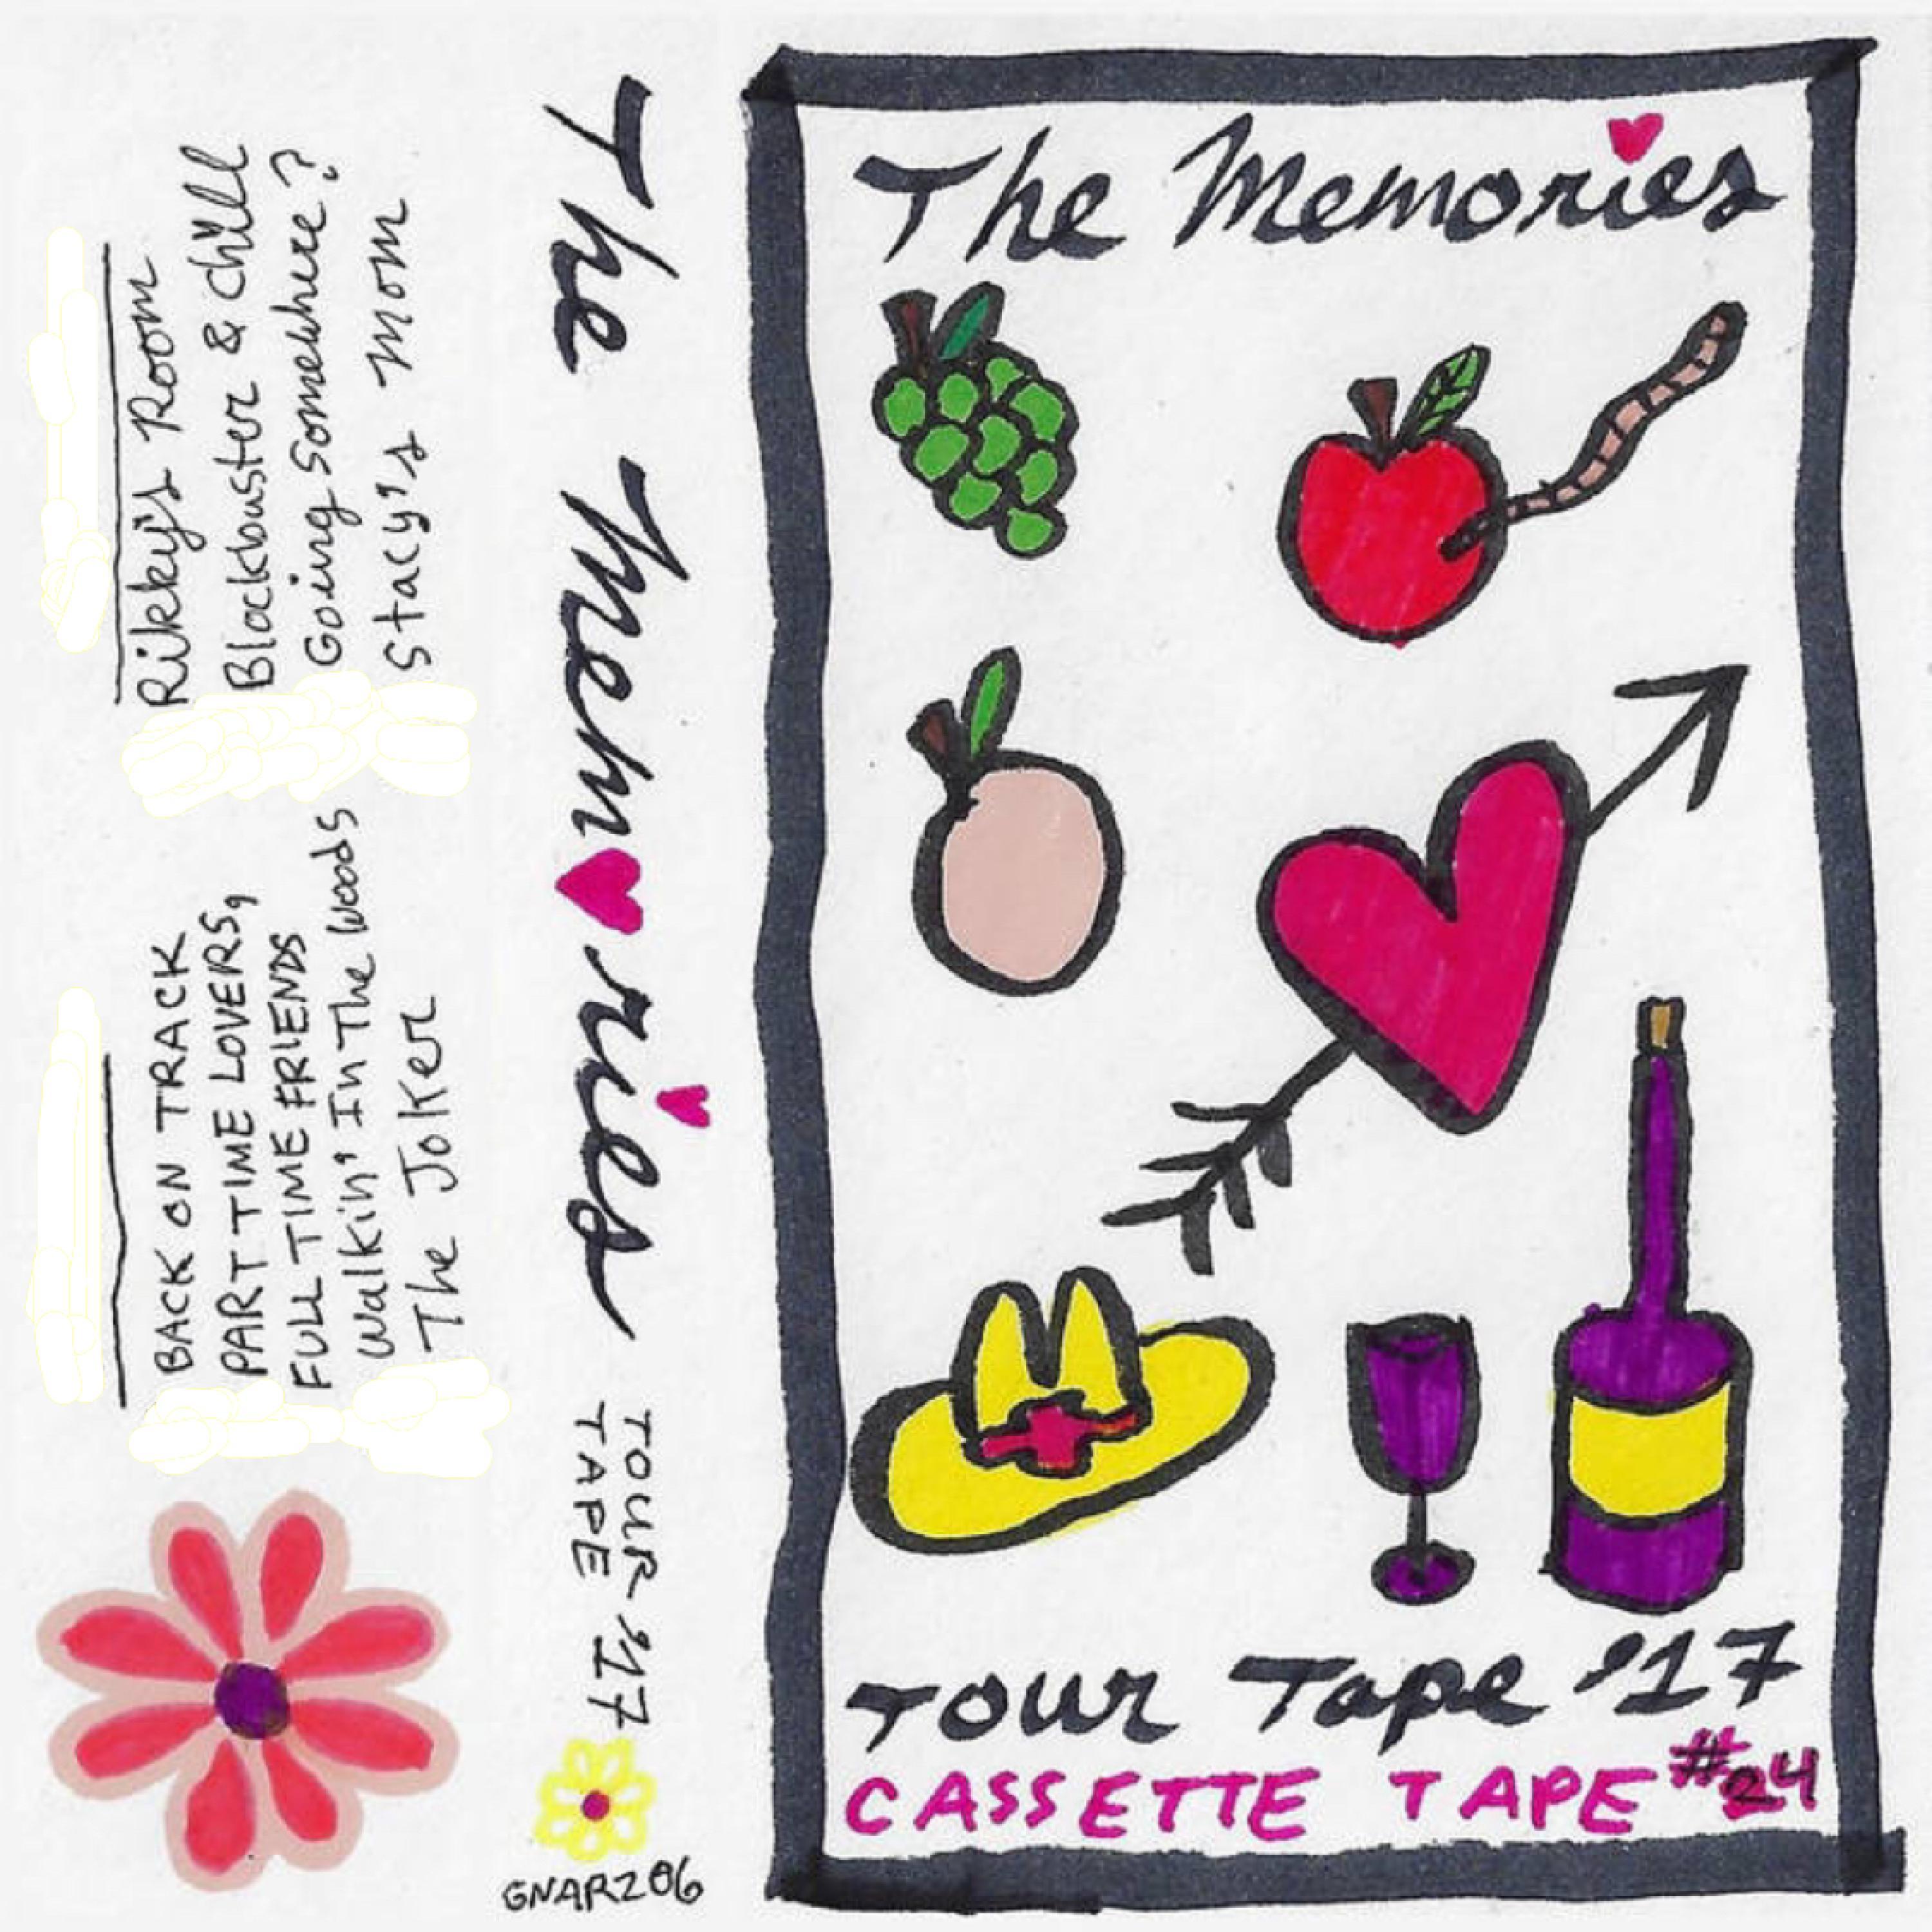 The Memories
TOUR Tape '17
CASSETTE TAPE #24
The Mem♥ries
TOUR '17
TAPE
GNAR206
Rikky's Room
Blockbuster & chill
Going somewhure?
Stacy's Mom
BACK ON TRACK
PART TIME LOVERS,
FULL TIME FRIENDS
Walkin' In The Woods
The Joker